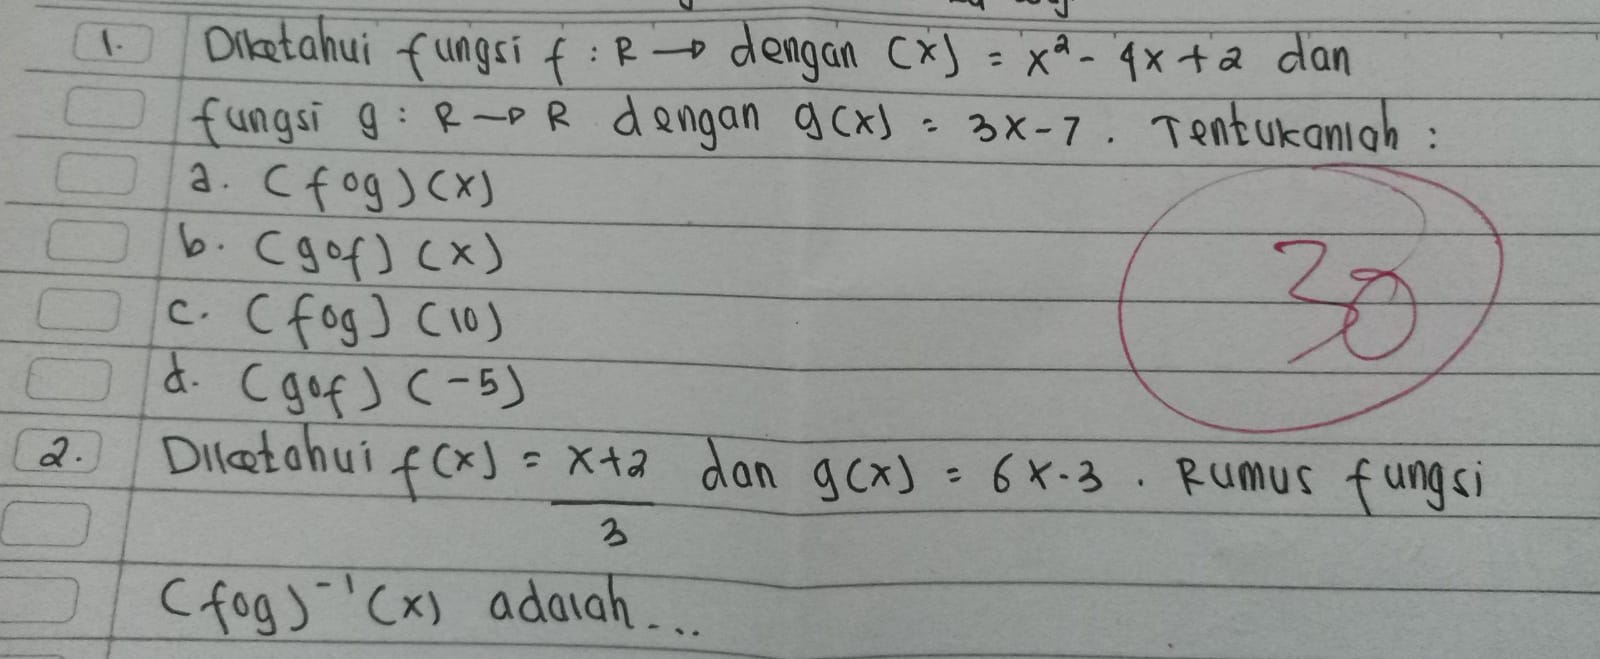 1. Diketahui fungsi f : R → dengan (x) = x² - 4x + 2 dan
fungsi g : R → R dengan g(x) = 3x - 7. Tentukanlah :
a. (fog)(x)
b. (gof) (x)
c. (fog) (10)
d. (gof) (-5)
30
2. Diketahui f(x) = x+2 dan g(x) = 6x-3. Rumus fungsi
3
(fog)⁻¹(x) adalah...